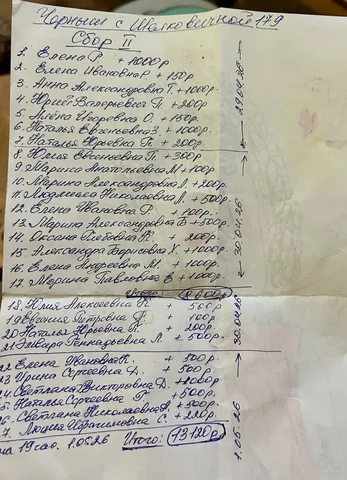 Чарныш с Шелковичной 179
Сбор II
1. Елена Р. + 1000р
2. Елена Ивановна Р. + 150р
3. Анна Александровна Т. + 1000р.
4. Юрий Валерьевич П + 200р
5. Алёна Игоревна О. + 150р.
6. Наталья Евгеньевна З. + 1000р.
7. Наталья Юрьевна П. + 200р.
8. Юлия Евгеньевна П. + 300р
9. Марина Анатольевна М + 100р.
10. Марина Александровна Л + 200р.
11. Людмила Николаевна Л. + 500р.
12. Елена Ивановна Р. + 100р.
13. Марина Александровна Б + 500р.
14. Оксана Олеговна К. 200р.
15. Александра Борисовна Х. + 1000р.
16. Елена Андреевна М. + 1000р.
17. Марина Павловна В + 1000р.
18. Юлия Алексеевна К + 500р
19. Евгения Петровна Ф. + 100р
20. Наталья Юрьевна К. + 200р.
21. Эльвира Геннадьевна Л. + 500р.
22. Елена Ивановна К. + 500р.
23. Ирина Сергеевна Д. + 500р.
24. Светлана Викторовна Д. + 1000р
5. Наталья Сергеевна Г + 500р.
6. Светлана Николаевна + 500р.
7. Лилия Ибрагимовна С. + 220р.
на 19 час. 1.05.26 Итого: 13120р
29.04.26
30.04.26
30.04.26
1.05.26